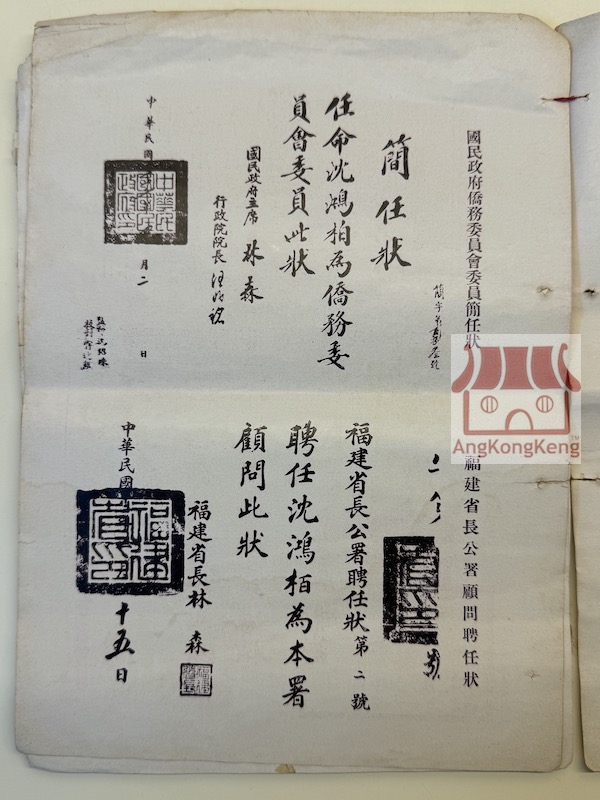 國民政府僑務委員會委員簡任狀
簡任狀
任命沈鴻柏為僑務委
員會委員此狀
國民政府主席 林森
行政院院長 汪兆銘
中華民國
中華民國國民政府印
月二日
AngKongKeng™
福建省長公署顧問聘任狀
福建省長公署聘任狀第二號
聘任沈鴻柏為本署
顧問此狀
福建省長林森
中華民國
福建省長印
十五日